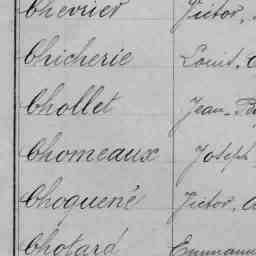 Chevrier Victor,
Chicherie Louis,
Chollet Jean-
Chomeaux Joseph
Choquené Victor,
Chotard